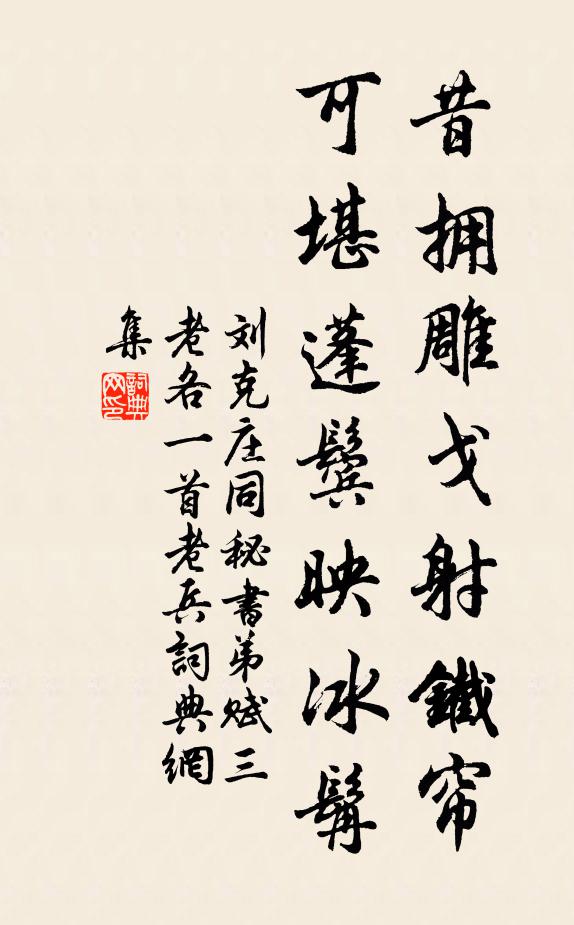 昔拥雕戈射鐵帘
可堪蓬鬓映冰髯
刘克庄同秘書弟赋三
老各一首老兵詞典網
集
詞典网印